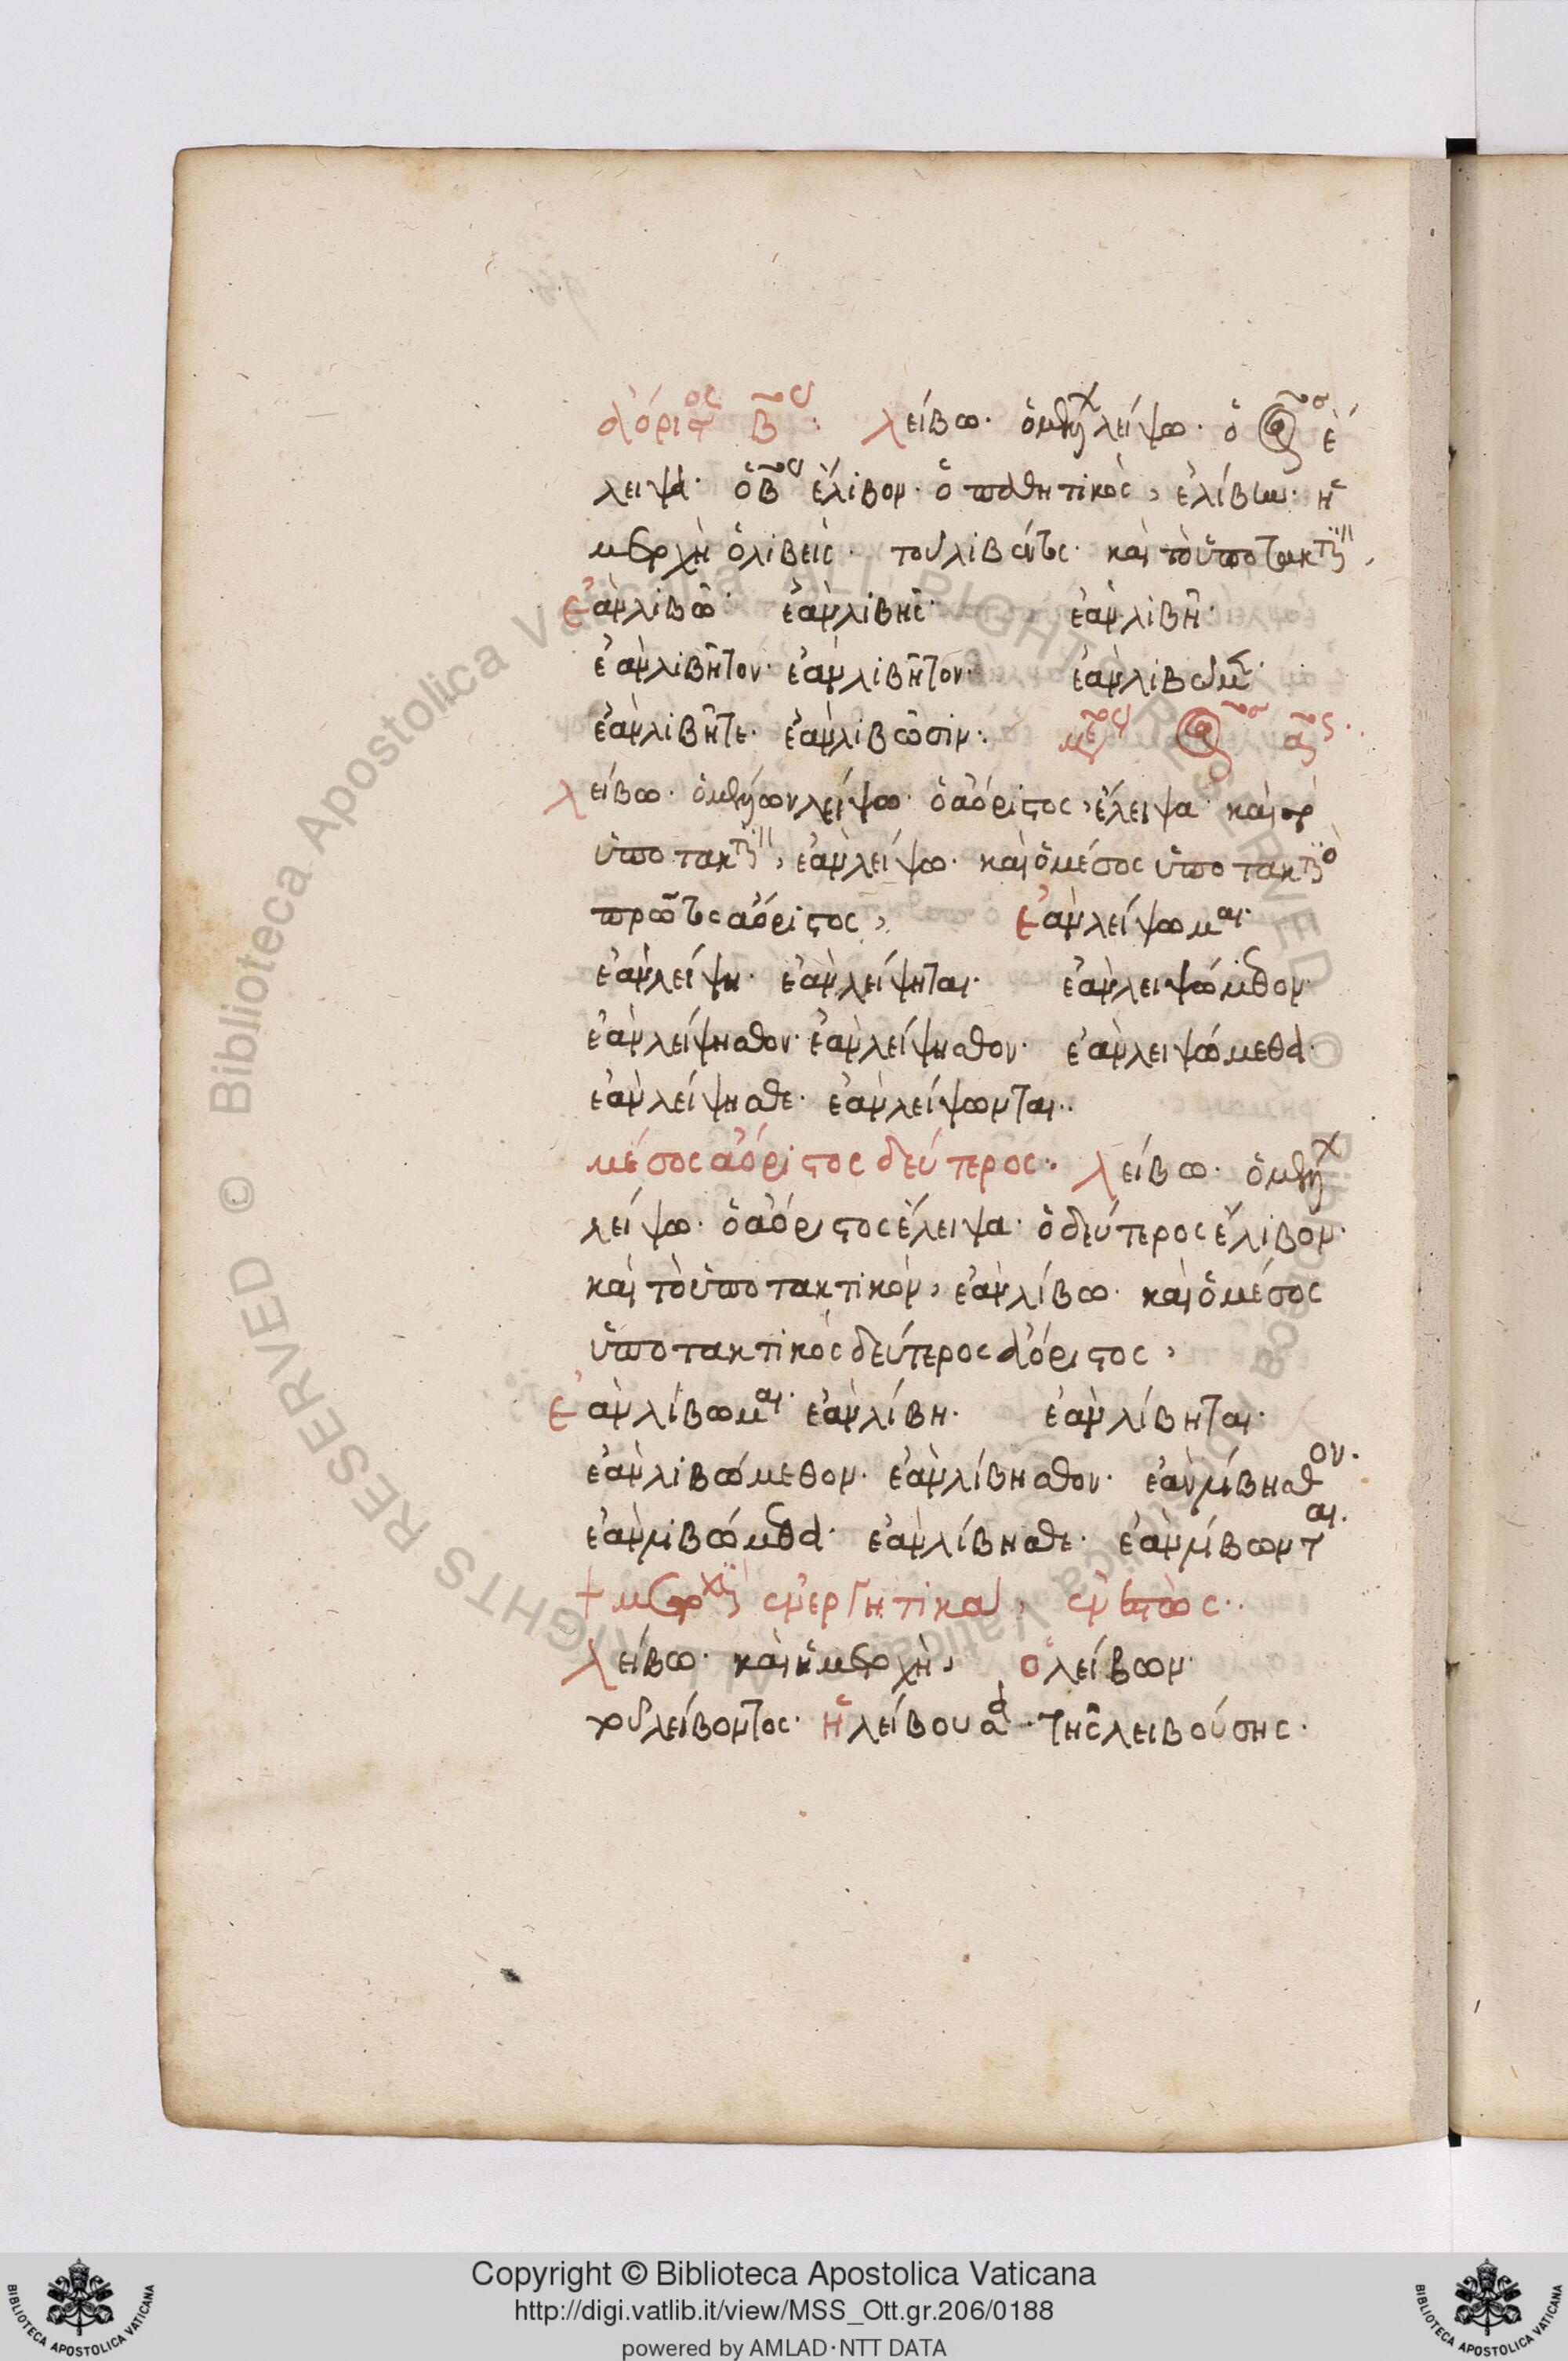 ἀόριστος βος· λείβω· ὁ μέλλων λείψω· ὁ αος ἔ
λειψα· ὁ βος ἔλιβον· ὁ παθητικὸς, ἐλίβην· ἡ
μετοχὴ ὁ λιβεὶς· τοῦ λιβέντος· καὶ τὸ ὑποτακτικὸν,
ἐὰν λιβῶ· ἐὰν λιβῆς· ἐὰν λιβῆ·
ἐὰν λιβῆτον· ἐὰν λιβῆτον· ἐὰν λιβῶμεν·
ἐὰν λιβῆτε· ἐὰν λιβῶσιν· μέσος αος
λείβω· ὁ μέλλων λείψω· ὁ ἀόριστος, ἔλειψα· καὶ τὸ
ὑποτακτικὸν, ἐὰν λείψω· καὶ ὁ μέσος ὑποτακτικὸς
πρῶτος ἀόριστος, ἐὰν λείψωμαι·
ἐὰν λείψη· ἐὰν λείψηται· ἐὰν λειψώμεθον·
ἐὰν λείψησθον· ἐὰν λείψησθον· ἐὰν λειψώμεθα·
ἐὰν λείψησθε· ἐὰν λείψωνται··
μέσος ἀόριστος δεύτερος· λείβω· ὁ μέλλων
λείψω· ὁ ἀόριστος ἔλειψα· ὁ δεύτερος ἔλιβον·
καὶ τὸ ὑποτακτικὸν, ἐὰν λίβω· καὶ ὁ μέσος
ὑποτακτικὸς δεύτερος ἀόριστος,
ἐὰν λίβωμαι· ἐὰν λίβη· ἐὰν λίβηται·
ἐὰν λιβώμεθον· ἐὰν λίβησθον· ἐὰν λίβησθον·
ἐὰν λιβώμεθα· ἐὰν λίβησθε· ἐὰν λίβωνται·
+ μετοχαὶ ἐνεργητικαὶ, ἐνεστῶτος··
λείβω· καὶ ἡ μετοχὴ, ὁ λείβων·
τοῦ λείβοντος· ἡ λείβουσα· τῆς λειβούσης·
Copyright © Biblioteca Apostolica Vaticana
http://digi.vatlib.it/view/MSS_Ott.gr.206/0188
powered by AMLAD·NTT DATA